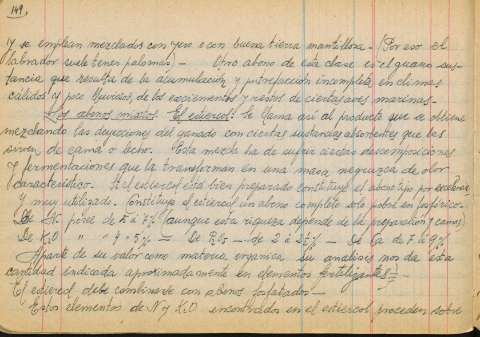 149.
y se emplean mezclados con yeso o con buena tierra mantillosa. (Por eso el
labrador suele tener palomas) - Otro abono de esta clase es el guano sus-
tancia que resulta de la acumulación y putrefacción incompleta en climas
cálidos y poco lluviosos, de los excrementos y restos de ciertas aves marinas.-
Los abonos mixtos El estiercol: Se llama así al producto que se obtiene
mezclando las deyecciones del ganado con ciertas sustancias absorbentes que les
sirven de cama o lecho. Esta mezcla ha de sufrir ciertas descomposiciones
y fermentaciones que la transforman en una masa negruzca de olor
característico. Si el estiercol está bien preparado constituye el abono tipo por excelencia
y muy utilizado. Constituye el estiercol un abono completo solo pobre en fosfórico.
De N posee de (aunque esta riqueza depende de la preparación y camas)
De K2O " " 4 - 5‰ = De P2O5 - de 2 a - De Ca de
Aparte de su valor como materia orgánica su análisis nos da esta
cantidad indicada aproximadamente en elementos fertilizantes -
El estiercol debe combinarse con abonos fosfatados -
Estos elementos de N y K2O encontrados en el estiercol proceden sobre